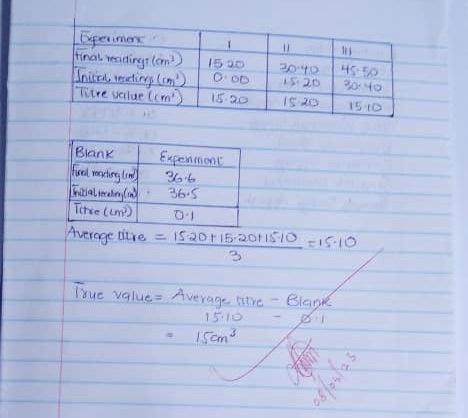 Experiment I II III
Final readings (cm³) 15.20 30.40 45.50
Initial readings (cm³) 0.00 15.20 30.40
Titre value (cm³) 15.20 15.20 15.10
Blank Experiment
Final reading (cm³) 36.6
Initial reading (cm³) 36.5
Titre (cm³) 0.1
Average titre = 15.20+15.20+15.10 = 15.10
3
True value = Average titre - Blank
15.10 - 0.1
= 15cm³